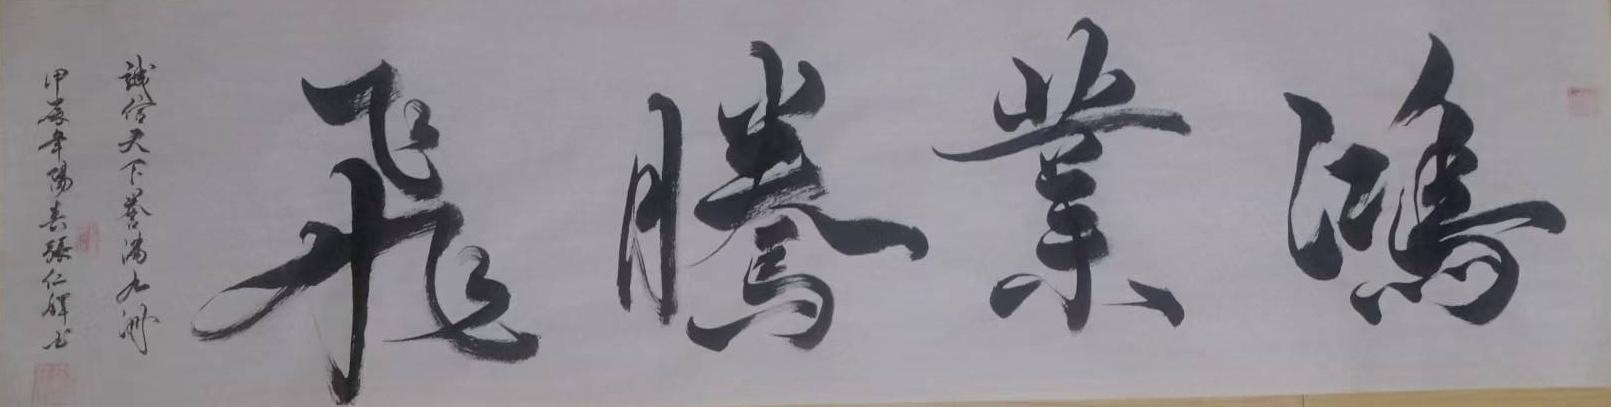 鴻業騰飛
誠信天下譽滿九州
甲辰年陽春張仁輝书